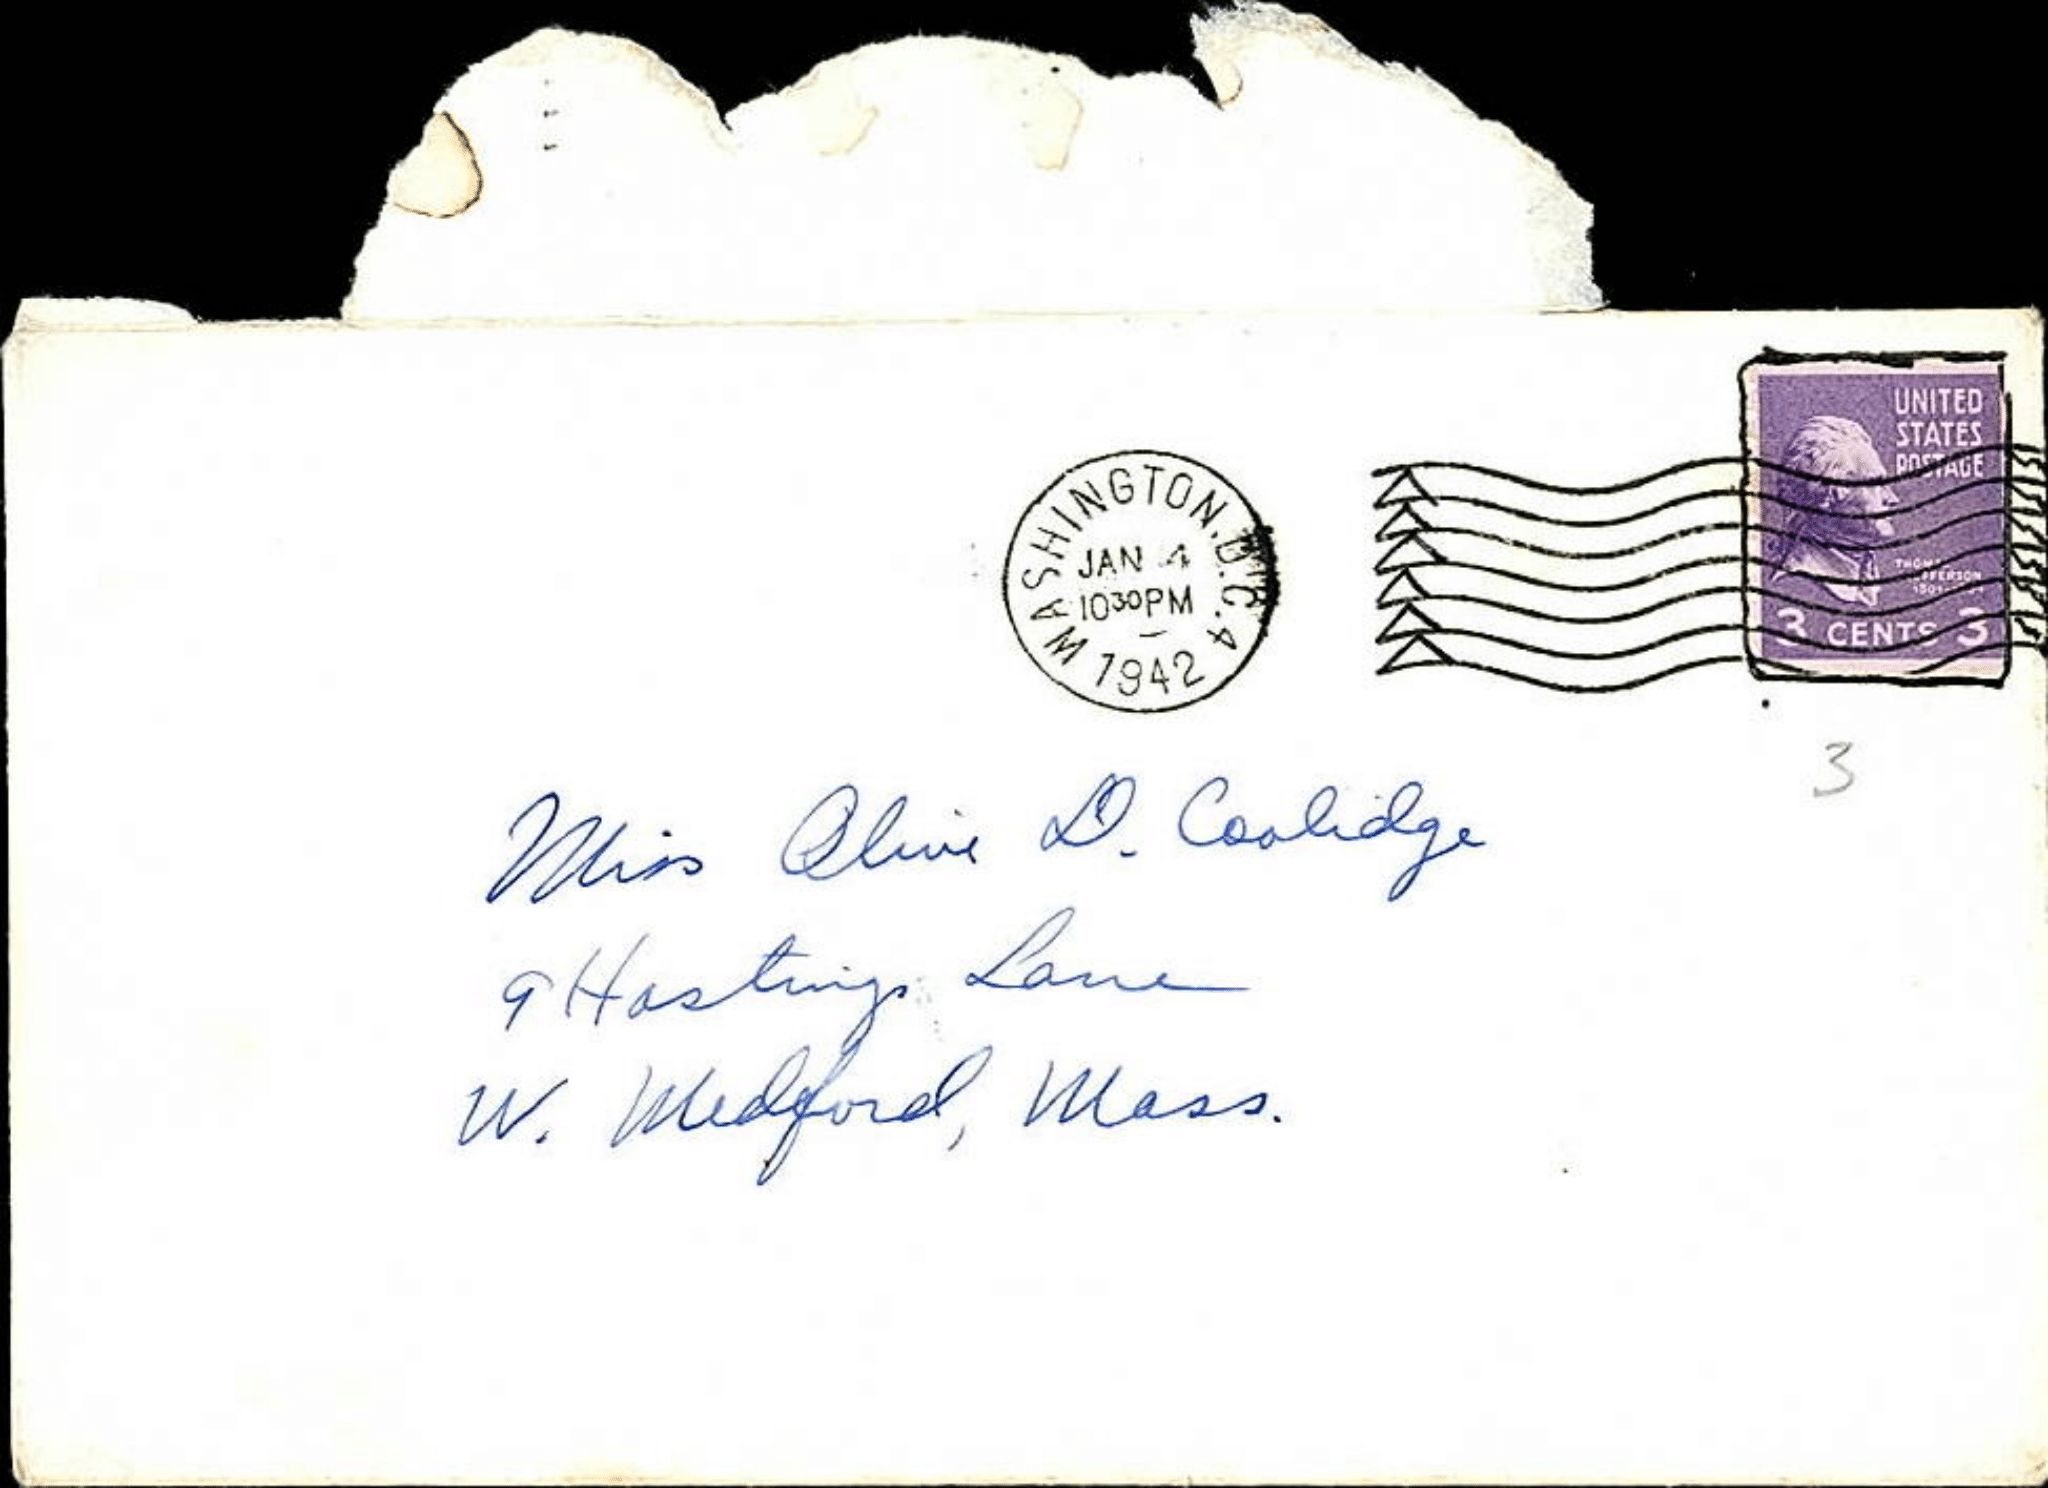 UNITED
STATES
POSTAGE
THOMAS
JEFFERSON
3 CENTS 3
WASHINGTON, D.C. 4
JAN 4
10 30 PM
1942
3
Miss Olive D. Coolidge
9 Hastings Lane
W. Medford, Mass.